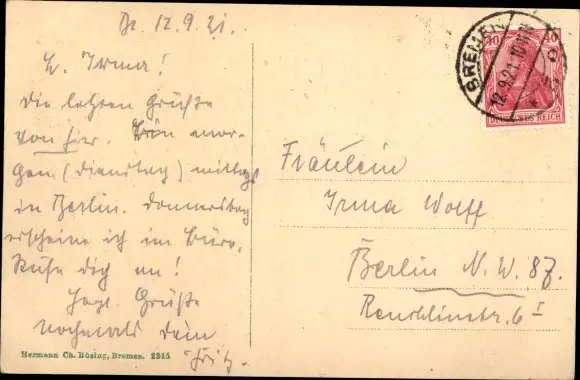 Br. 12.9.21.
L. Irma!
Die letzten Grüße
von hier. Bin mor-
gen (Dienstag) mittags
in Berlin. Donnerstag
erscheine ich im Büro.
Rufe dich an!
Herzl. Grüße
nochmals dein
Fritz.
Hermann Ch. Büsing, Bremen. 2245
BREMEN
12.9.21. 10-11
40 40
DEUTSCHES REICH
Fräulein
Irma Wolff
Berlin N.W. 87.
Reuchlinstr. 6 I